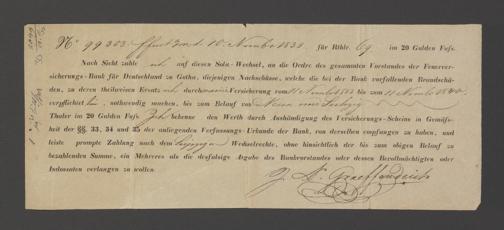 No 99303. Erfurt, den 10 Novembr 1839. für Rthlr. 69. im 20 Gulden Fuß.
Nach Sicht zahle ich auf diesen Sola-Wechsel, an die Ordre des gesammten Vorstandes der Feuerver-
sicherungs-Bank für Deutschland zu Gotha, diejenigen Nachschüsse, welche die bei der Bank vorfallenden Brandschä-
den, zu deren theilweisen Ersatz ich durch meine Versicherung vom 11 Novbr 1839 bis zum 11 Novbr 1840.
verpflichtet bin, nothwendig machen, bis zum Belauf von Neun und Sechzig
Thaler im 20 Gulden Fuß. Ich bekenne den Werth durch Aushändigung des Versicherungs-Scheins in Gemäß-
heit der §§. 33, 34 und 35 der anliegenden Verfassungs-Urkunde der Bank, von derselben empfangen zu haben, und
leiste prompte Zahlung nach dem Leipziger Wechselrechte, ohne hinsichtlich der bis zum obigen Belauf zu
bezahlenden Summe, ein Mehreres als die desfalsige Angabe des Bankvorstandes oder dessen Bevollmächtigten oder
Indossaten verlangen zu wollen.